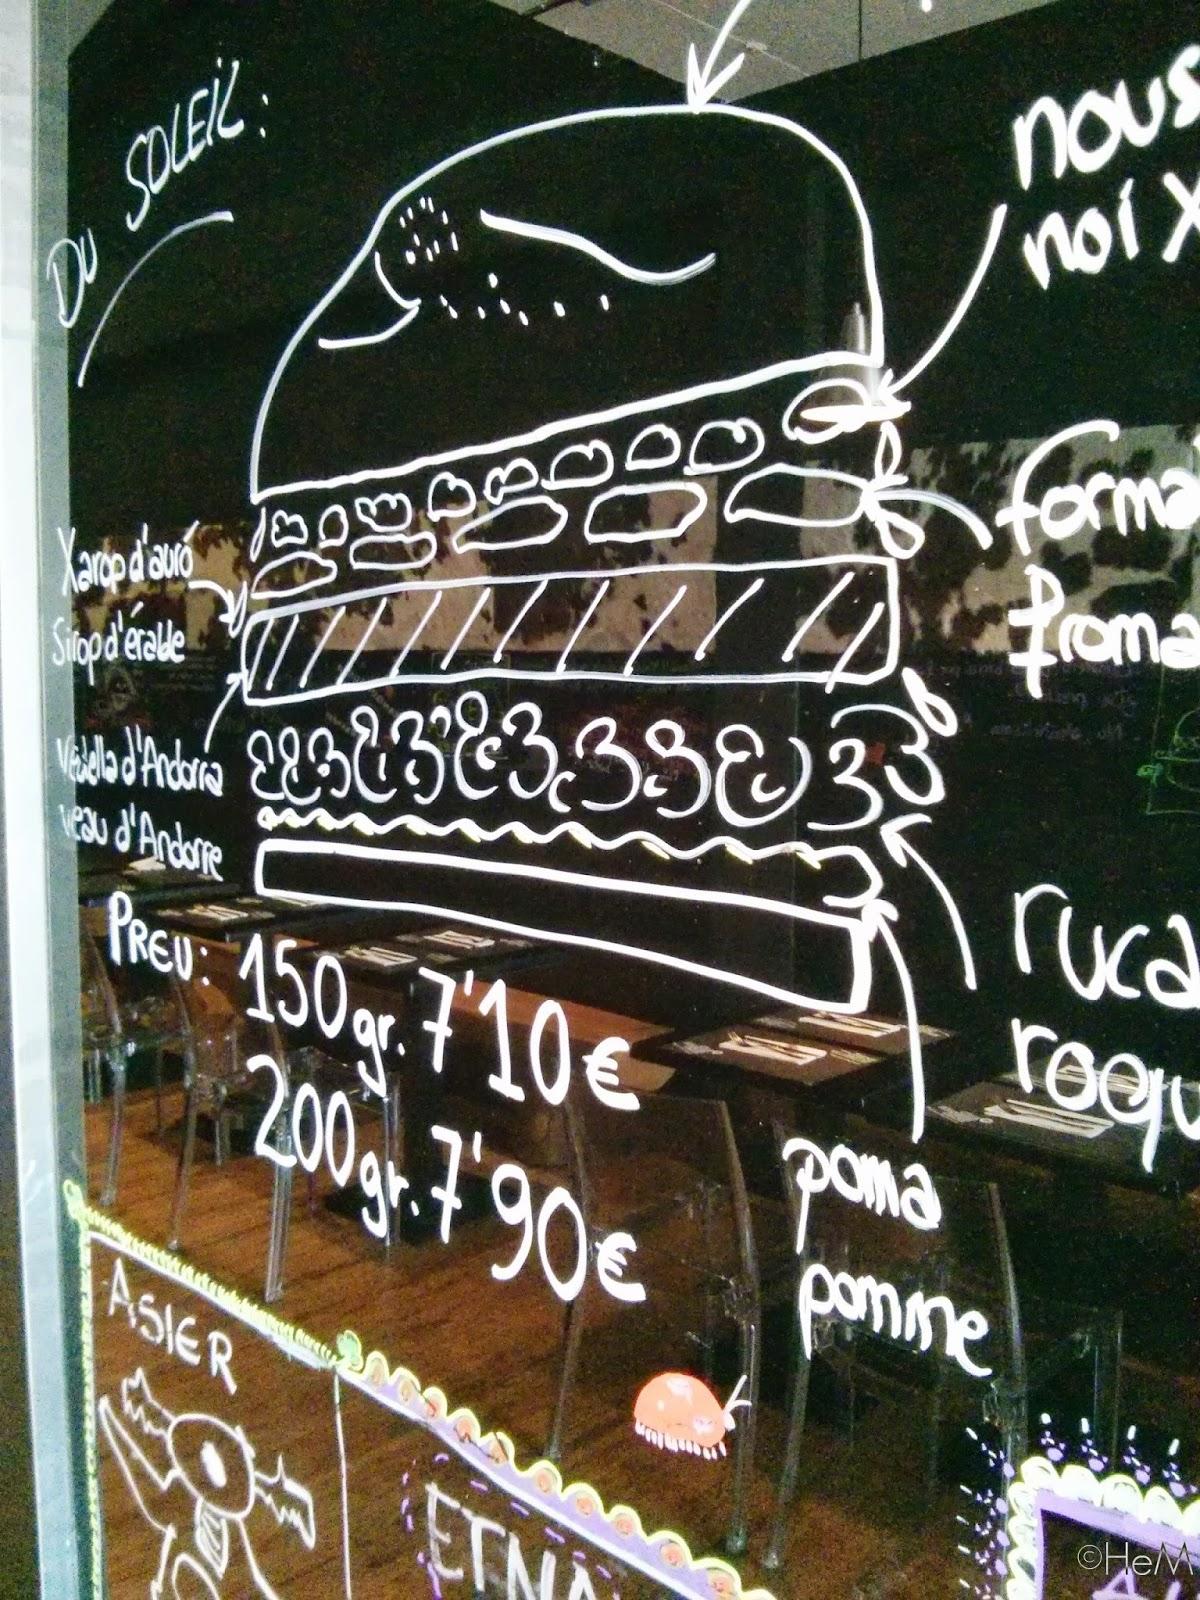 DU SOLEIL:
nous
noi X
Xarop d'auró
Sirop d'érable
forma
froma
Vedella d'Andorra
veau d'Andorre
PREU: 150gr. 7'10€
200gr. 7'90€
ruca
roqu
poma
pomme
ASIER
ETNA
©HeM